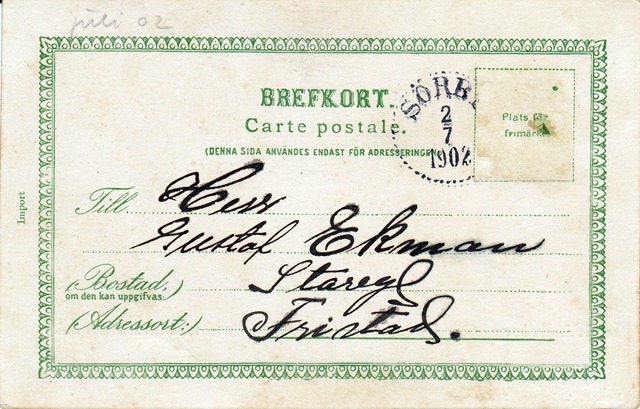 juli 02
BREFKORT.
Carte postale.
(DENNA SIDA ANVÄNDES ENDAST FÖR ADRESSERINGEN
SÖRBY
2
7
1902
Plats för
frimärke
Import
Till Herr
Gustaf Ekman
(Bostad,)
om den kan uppgifvas:
(Adressort:) Fristad.